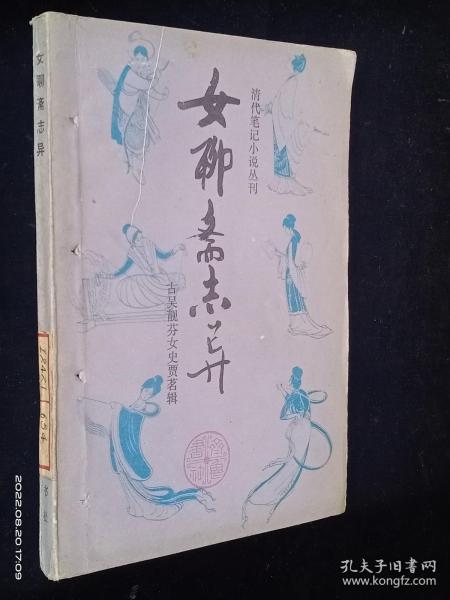 女聊斋志异
清代笔记小说丛刊
古吴靓芬女史贾茗辑
女聊斋志异
书社
634
2022.08.20 17:09
孔夫子旧书网
www.kongfz.com